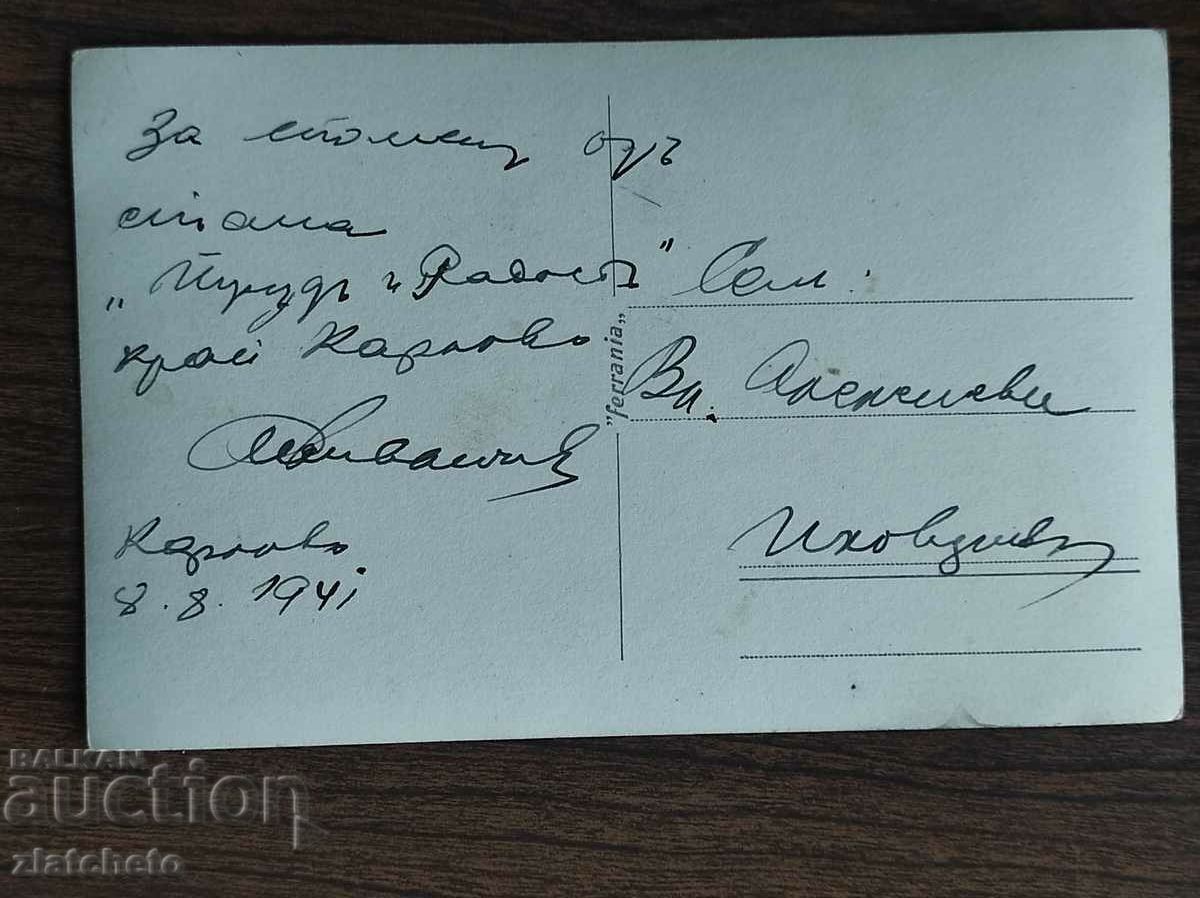 За спомен отъ
стана
„Трудъ и Радость"
край Карлово
Карлово
8.8.1941
Сем:
Вл.
"ferrania"
BALKAN
auction
zlatcheto